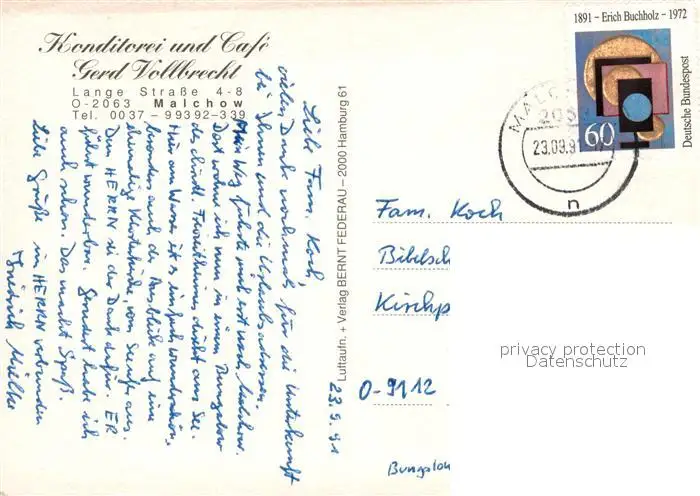 Konditorei und Café
Gerd Vollbrecht
Lange Straße 4-8
O-2063 Malchow
Tel. 0037 – 99392-339
23.9.91
Liebe Fam. Koch,
vielen Dank nochmals für die Unterkunft
bei Ihnen und die Urlaubsadressen.
Mein Weg führte mich erst nach Malchow.
Dort wohne ich nun in einem Bungalow
des kirchl. Freizeitheimes direkt am See.
Hier am Wasser ist es einfach wunderschön,
besonders auch der Ausblick auf eine
ehemalige Klosterkirche, vom Seeufer aus.
Dem HERRN sei der Dank dafür. ER
führt wunderbar. Gerudert habe ich
auch schon. Das macht Spaß.
Liebe Grüße im HERRN verbunden
Müller
Luftaufn. + Verlag BERNT FEDERAU – 2000 Hamburg 61
1891 – Erich Buchholz – 1972
Deutsche Bundespost
60
MALC
23.09.91
n
Fam. Koch
Bibelsch
Kirchp
O-9112
Bungalow
privacy protection
Datenschutz